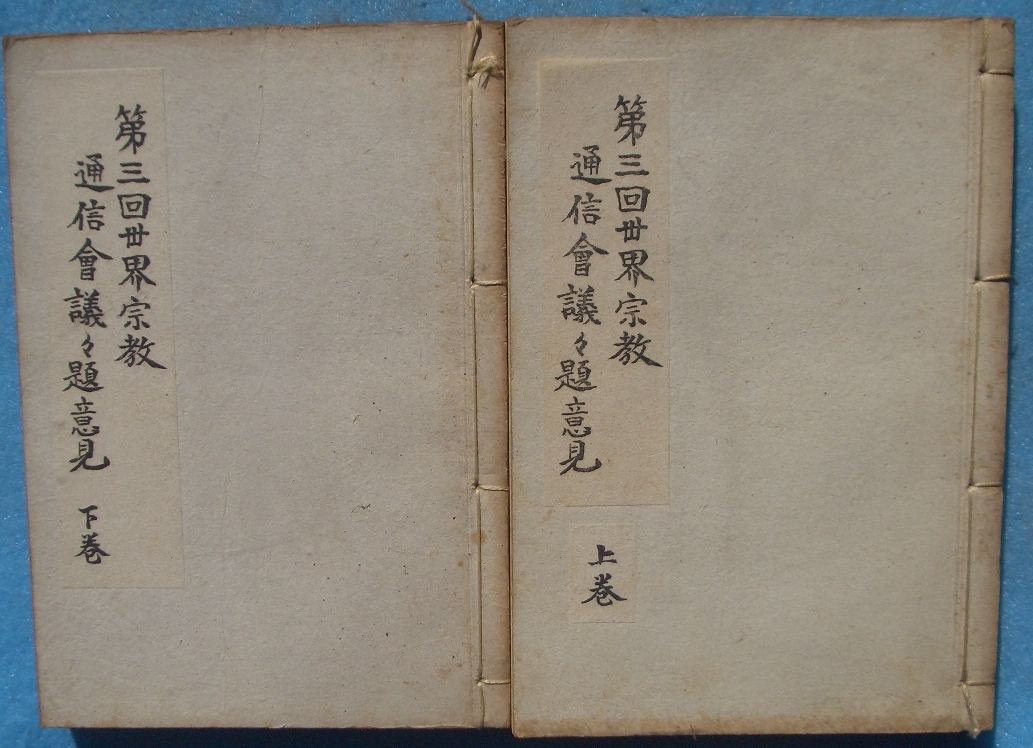 第三回丗界宗教
通信會議々題意見
上巻
第三回丗界宗教
通信會議々題意見 下巻